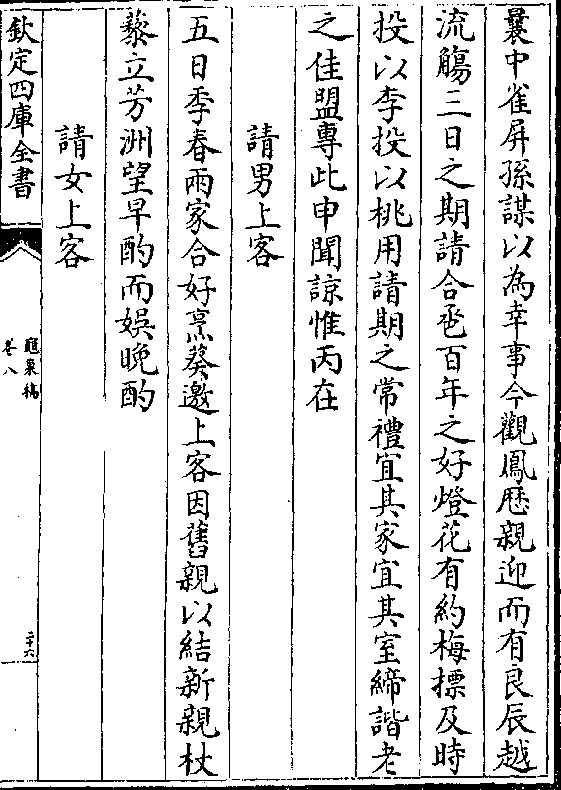 曩中雀屏孫謀以為幸事今觀鳳曆親迎而有良辰越
流觴三日之期請合卺百年之好燈花有約梅摽及時
投以李投以桃用請期之常禮宜其家宜其室締諧老
之佳盟專此申聞諒惟丙在
請男上客
五日季春兩家合好烹葵邀上客因舊親以結新親杖
藜立芳洲望早酌而娛晚酌
請女上客
欽定四庫全書
巢稿
卷八
二十六